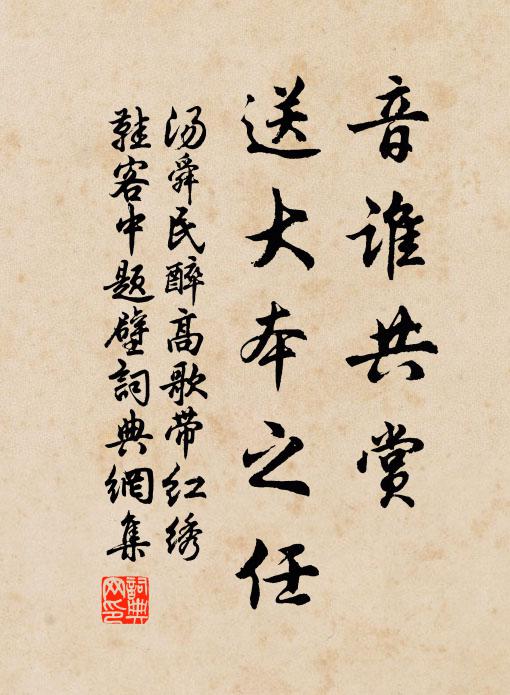 音谁共赏
送大本之任
汤舜民醉高歌带红绣
鞋客中题壁詞典網集
詞典
网印